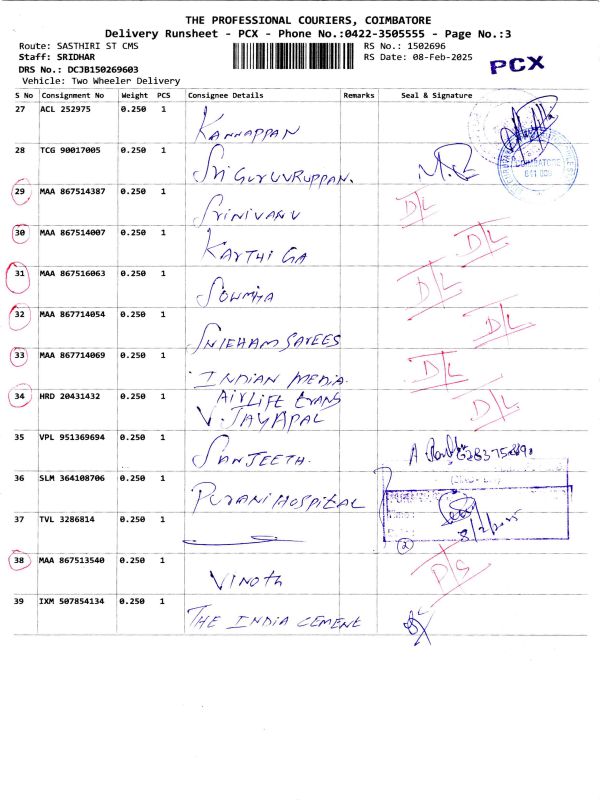 THE PROFESSIONAL COURIERS, COIMBATORE
Delivery Runsheet - PCX - Phone No.:0422-3505555 - Page No.:3
Route: SASTHIRI ST CMS RS No.: 1502696
Staff: SRIDHAR RS Date: 08-Feb-2025
PCX
DRS No.: DCJB150269603
Vehicle: Two Wheeler Delivery
S No Consignment No Weight PCS Consignee Details Remarks Seal & Signature
27 ACL 252975 0.250 1 KANNAPPAN
28 TCG 90017005 0.250 1 Sri GURUVRUPPAN.
COIMBATORE
641 006
29 MAA 867514387 0.250 1 SriNIVANU D/L
30 MAA 867514007 0.250 1 KARTHIGA D/L
31 MAA 867516063 0.250 1 SOWMHA D/L
32 MAA 867714054 0.250 1 SNIEHAM SAREES D/L
33 MAA 867714069 0.250 1 INDIAN MEDIA. D/L
34 HRD 20431432 0.250 1 AIRLIFE TRANS D/L
V. JAYAPAL
35 VPL 951369694 0.250 1 SANJEETH.
36 SLM 364108706 0.250 1 PURANI HOSPITAL
37 TVL 3286814 0.250 1 8/2/2025
2
38 MAA 867513540 0.250 1 VINOTH D/S
39 IXM 507854134 0.250 1 THE INDIA CEMENT